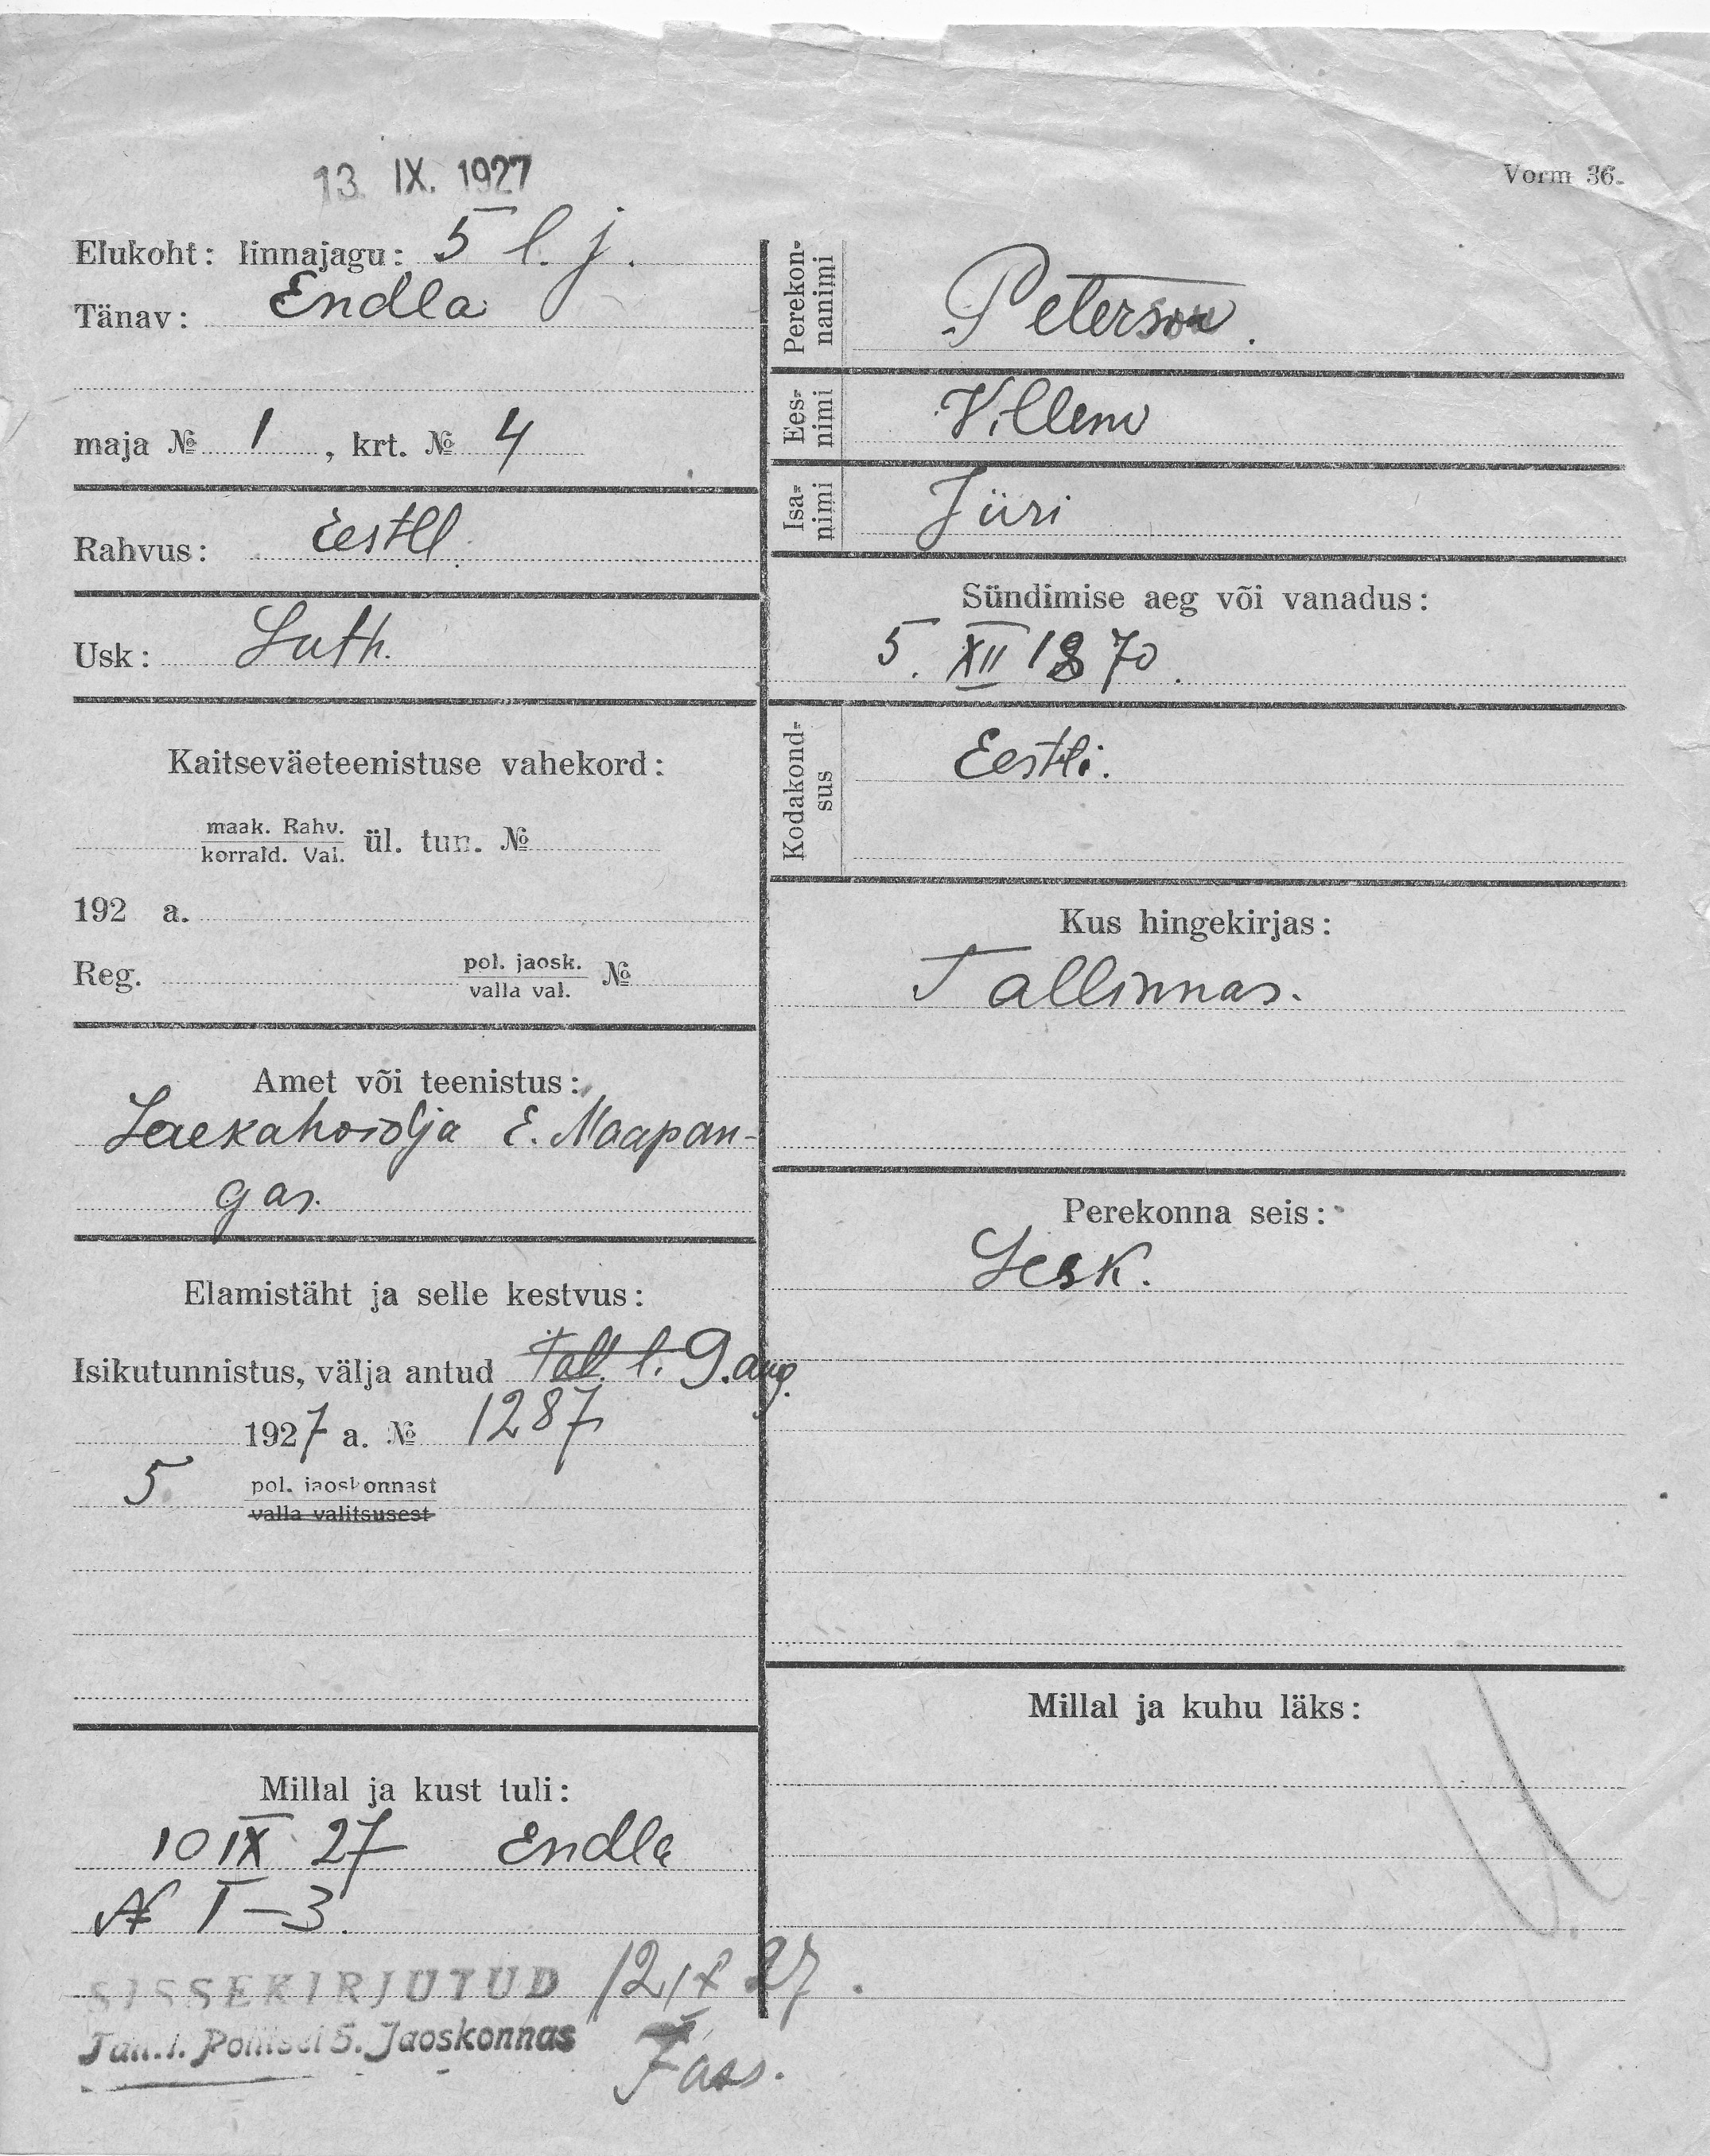 13. IX. 1927
Vorm 36.
Elukoht: linnajagu: 5 l. j.
Tänav: Endla
maja № 1, krt. № 4
Rahvus: Eestl.
Usk: Luth.
Kaitseväeteenistuse vahekord:
maak. Rahv.
korrald. Val. ül. tun. №
192 a.
Reg. pol. jaosk. №
valla val.
Amet või teenistus:
Laekahoidja E. Maapan-
gas.
Elamistäht ja selle kestvus:
Isikutunnistus, välja antud Tall. l. 9. aug.
1927 a. № 1287
5 pol. jaoskonnast
valla valitsusest
Millal ja kust tuli:
10 IX 27 Endla
№ 1-3.
SISSEKIRJUTUD 12 IX 27.
Tall. l. Politsei 5. Jaoskonnas
Perekon-
nanimi
Peterson.
Ees-
nimi
Villem
Isa-
nimi
Jüri
Sündimise aeg või vanadus:
5. XII 1870.
Kodakond-
sus
Eesti.
Kus hingekirjas:
Tallinnas.
Perekonna seis:
Lesk.
Millal ja kuhu läks: